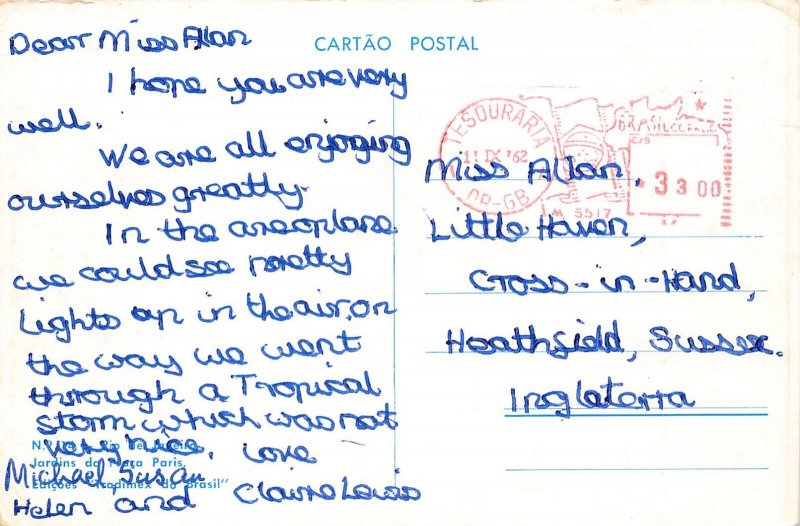 Dear Miss Allan
I hope you are very
well.
We are all enjoying
ourselves greatly.
In the areoplane
we could see pretty
Lights up in the air, on
the way we went
through a Tropical
storm, which was not
very nice. Love
Michael, Susan
Helen, and Claire Lewis
CARTÃO POSTAL
TESOURARIA
11 IX '62
DR-GB
BRASIL CORREIO
M 5517
3 3 00
Miss Allan,
Little Haven,
Cross-in-Hand,
Heathfield, Sussex.
Inglaterra
Rio de Janeiro
Jardins da Praça Paris
Edições "Tradimex do Brasil"